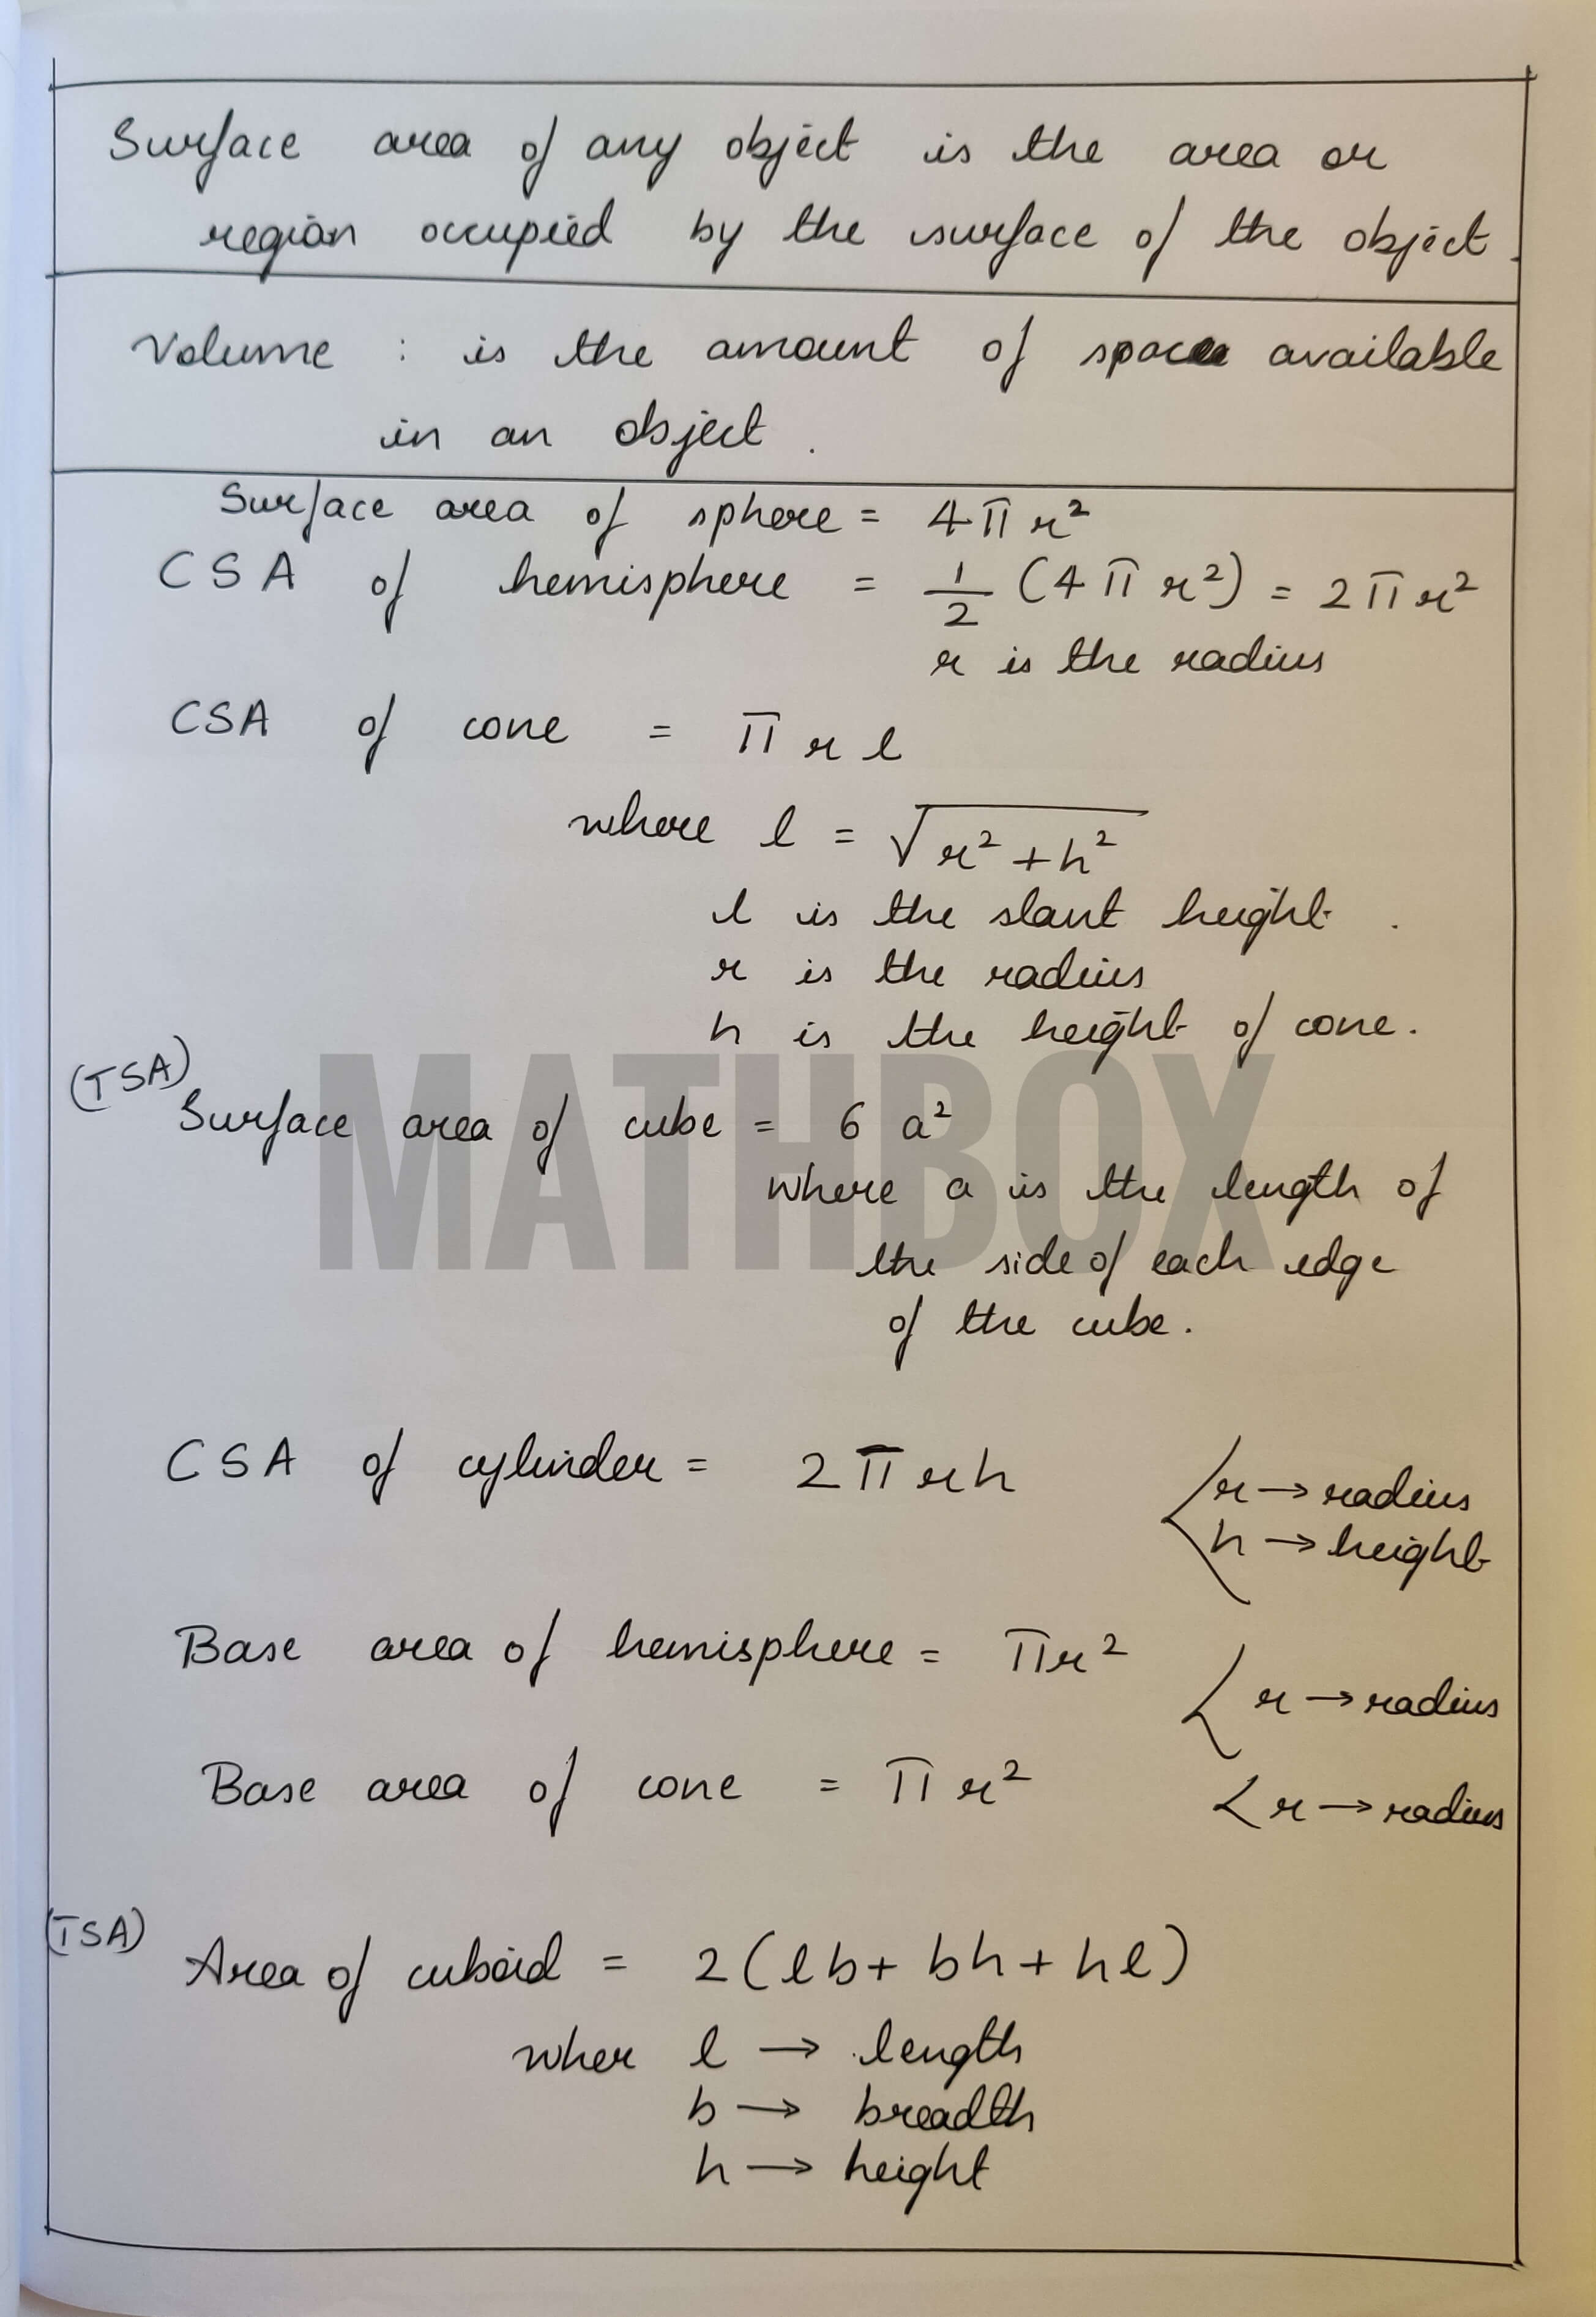 Surface area of any object is the area or
region occupied by the surface of the object.
Volume : is the amount of space available
in an object.
Surface area of sphere = 4πr²
CSA of hemisphere = 1/2 (4πr²) = 2πr²
r is the radius
CSA of cone = πrl
where l = √(r²+h²)
l is the slant height.
r is the radius
h is the height of cone.
(TSA)
Surface area of cube = 6 a²
where a is the length of
the side of each edge
of the cube.
MATHBOX
CSA of cylinder = 2πrh
r → radius
h → height
Base area of hemisphere = πr²
r → radius
Base area of cone = πr²
r → radius
(TSA)
Area of cuboid = 2(lb + bh + hl)
wher l → length
b → breadth
h → height